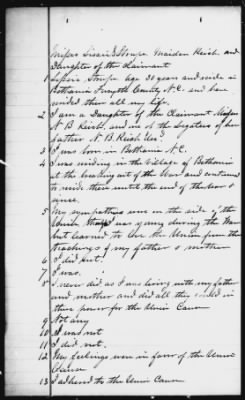 Daughter of the Claimant
1 Stoupe Age 30 years and reside in
Bethania Forsyth County N.C. and have
resided there all my life.
2 I am a Daughter of the Claimant
N B and one of the Legatees of her
father N. B.
3 I was born in Bethania N.C.
4 I was residing in the Village of Bethania
at the breaking out of the War and continued
to reside there until the end of the war &
since.
5 My sympathies were on the side of the
Union was young during the War
but learned to love the Union from the
teachings of my father & mother
6 I did not.
7 I was.
8 I never did as I was living with my father
and mother and did all they could in
there power for the Union Cause
9 Not any
10 I was not
11 I did not.
12 My feelings were in favor of the Union
Cause
13 I adhered to the Union Cause